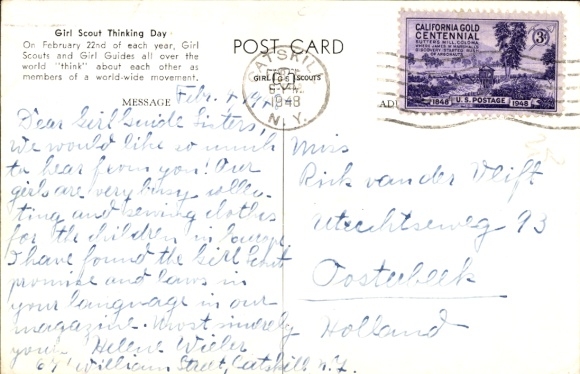 Girl Scout Thinking Day
On February 22nd of each year, Girl
Scouts and Girl Guides all over the
world "think" about each other as
members of a world-wide movement.
POST CARD
GIRL SCOUTS
CATSKILL
1948
N. Y.
CALIFORNIA GOLD
CENTENNIAL
SUTTER'S MILL, COLOMA
WHERE JAMES W. MARSHALL'S
DISCOVERY STARTED RUSH
OF ARGONAUTS
3¢
1848 U.S. POSTAGE 1948
MESSAGE
AD
Febr.
Dear Girl Guide Sisters,
We would like so much
to hear from you! Our
girls are very busy collec-
ting and sewing clothes
for the children in Europe.
I have found the Girl Scout
promise and laws in
your language in our
magazine. Most sincerely
yours Helene Wieler
William Street, Catskill N.Y.
Miss
Rick van der Vlift
Utrechtseweg 93
Oosterbeek
Holland